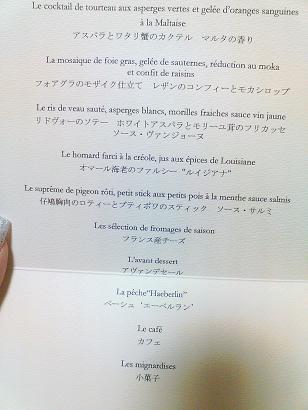 Le cocktail de tourteau aux asperges vertes et gelée d'oranges sanguines
à la Maltaise
アスパラとワタリ蟹のカクテル　マルタの香り
La mosaique de foie gras, gelée de sauternes, réduction au moka
et confit de raisins
フォアグラのモザイク仕立て　レザンのコンフィーとモカシロップ
Le ris de veau sauté, asperges blancs, morilles fraiches sauce vin jaune
リドヴォーのソテー　ホワイトアスパラとモリーユ茸のフリカッセ
ソース・ヴァンジョーヌ
Le homard farci à la créole, jus aux épices de Louisiane
オマール海老のファルシー "ルイジアナ"
Le suprême de pigeon rôti, petit stick aux petits pois à la menthe sauce salmis
仔鳩胸肉のロティーとプティポワのスティック　ソース・サルミ
Les sélection de fromages de saison
フランス産チーズ
L'avant dessert
アヴァンデセール
La pêche"Haeberlin"
ペーシュ 'エーベルラン'
Le café
カフェ
Les mignardises
小菓子